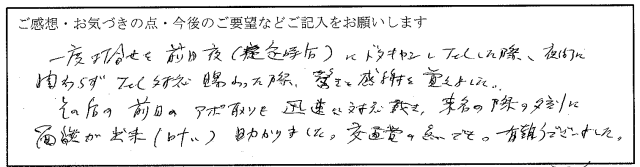 ご感想・お気づきの点・今後のご要望などご記入をお願いします
一度打合せを前日夜(に ドタキャンしTelした際、夜間に
拘わらずTel対応賜わった際、驚きと感謝を覚えました。
その后の前日のアポ取りも迅速に対応戴き、来名の際の夕刻に
面談が出来 助かりました。交通費の点でも。有難うございました。